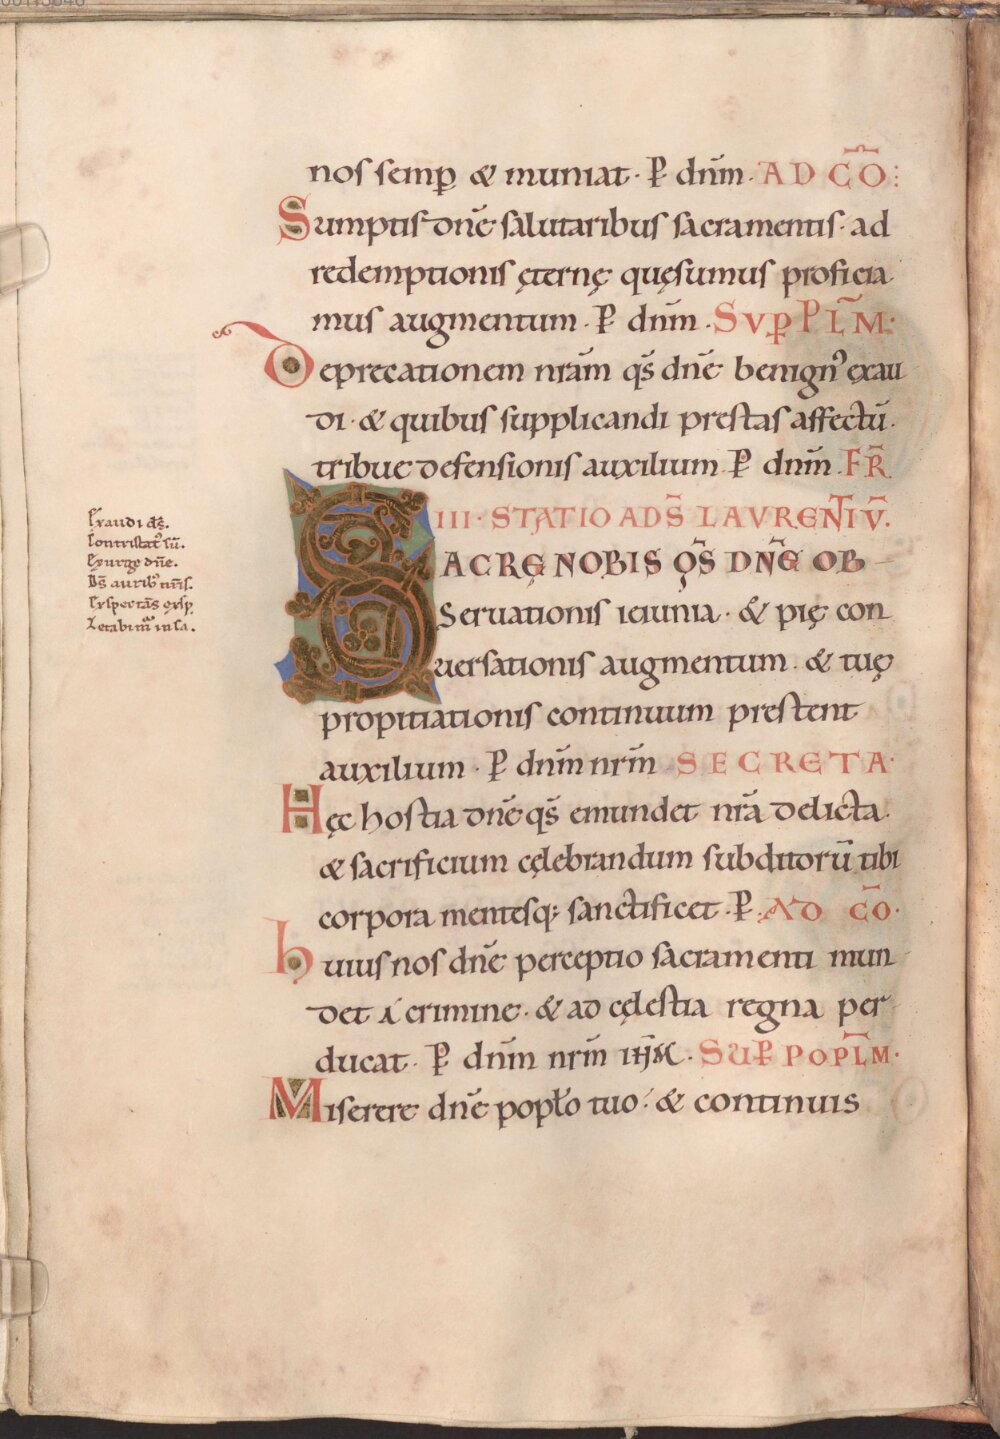 nos semꝑ & muniat · P̱ dn̄m · AD C̄O :
Sumptis dn̄e salutaribus sacramentis · ad
redemptionis ęternę quęsumus proficia
mus augmentum · P̱ dn̄m · SVꝑ PL̄M ·
Deprecationem nr̄am qs̄ dn̄e benignꝰ exau
di · & quibus supplicandi prestas affectū ·
tribue defensionis auxilium · P̱ dn̄m · FR̄
III · STATIO AD S̄ LAVRENTIV̄ .
SACRĘ NOBIS QS̄ DN̄E OB
Seruationis ieiunia · & pię con
uersationis augmentum · & tuę
propitiationis continuum prestent
auxilium · P̱ dn̄m nr̄m SECRETA ·
Hęc hostia dn̄e qs̄ emundet nr̄a delicta ·
& sacrificium cęlebrandum subditorū tibi
corpora mentesq; sanctificet · P̱ · AD C̄O ·
huius nos dn̄e perceptio sacramenti mun
det á crimine · & ad cęlestia regna per
ducat · P̱ dn̄m nr̄m · SUP̱ POPL̄M ·
Miserere dn̄e popło tuo · & continuis
Exaudi ds̄ .
Contristatꝰ sū .
Exurge dn̄e .
Ds̄ auribꝰ nr̄is .
Exspectās exsp̄ .
Letabim̄ in sa .